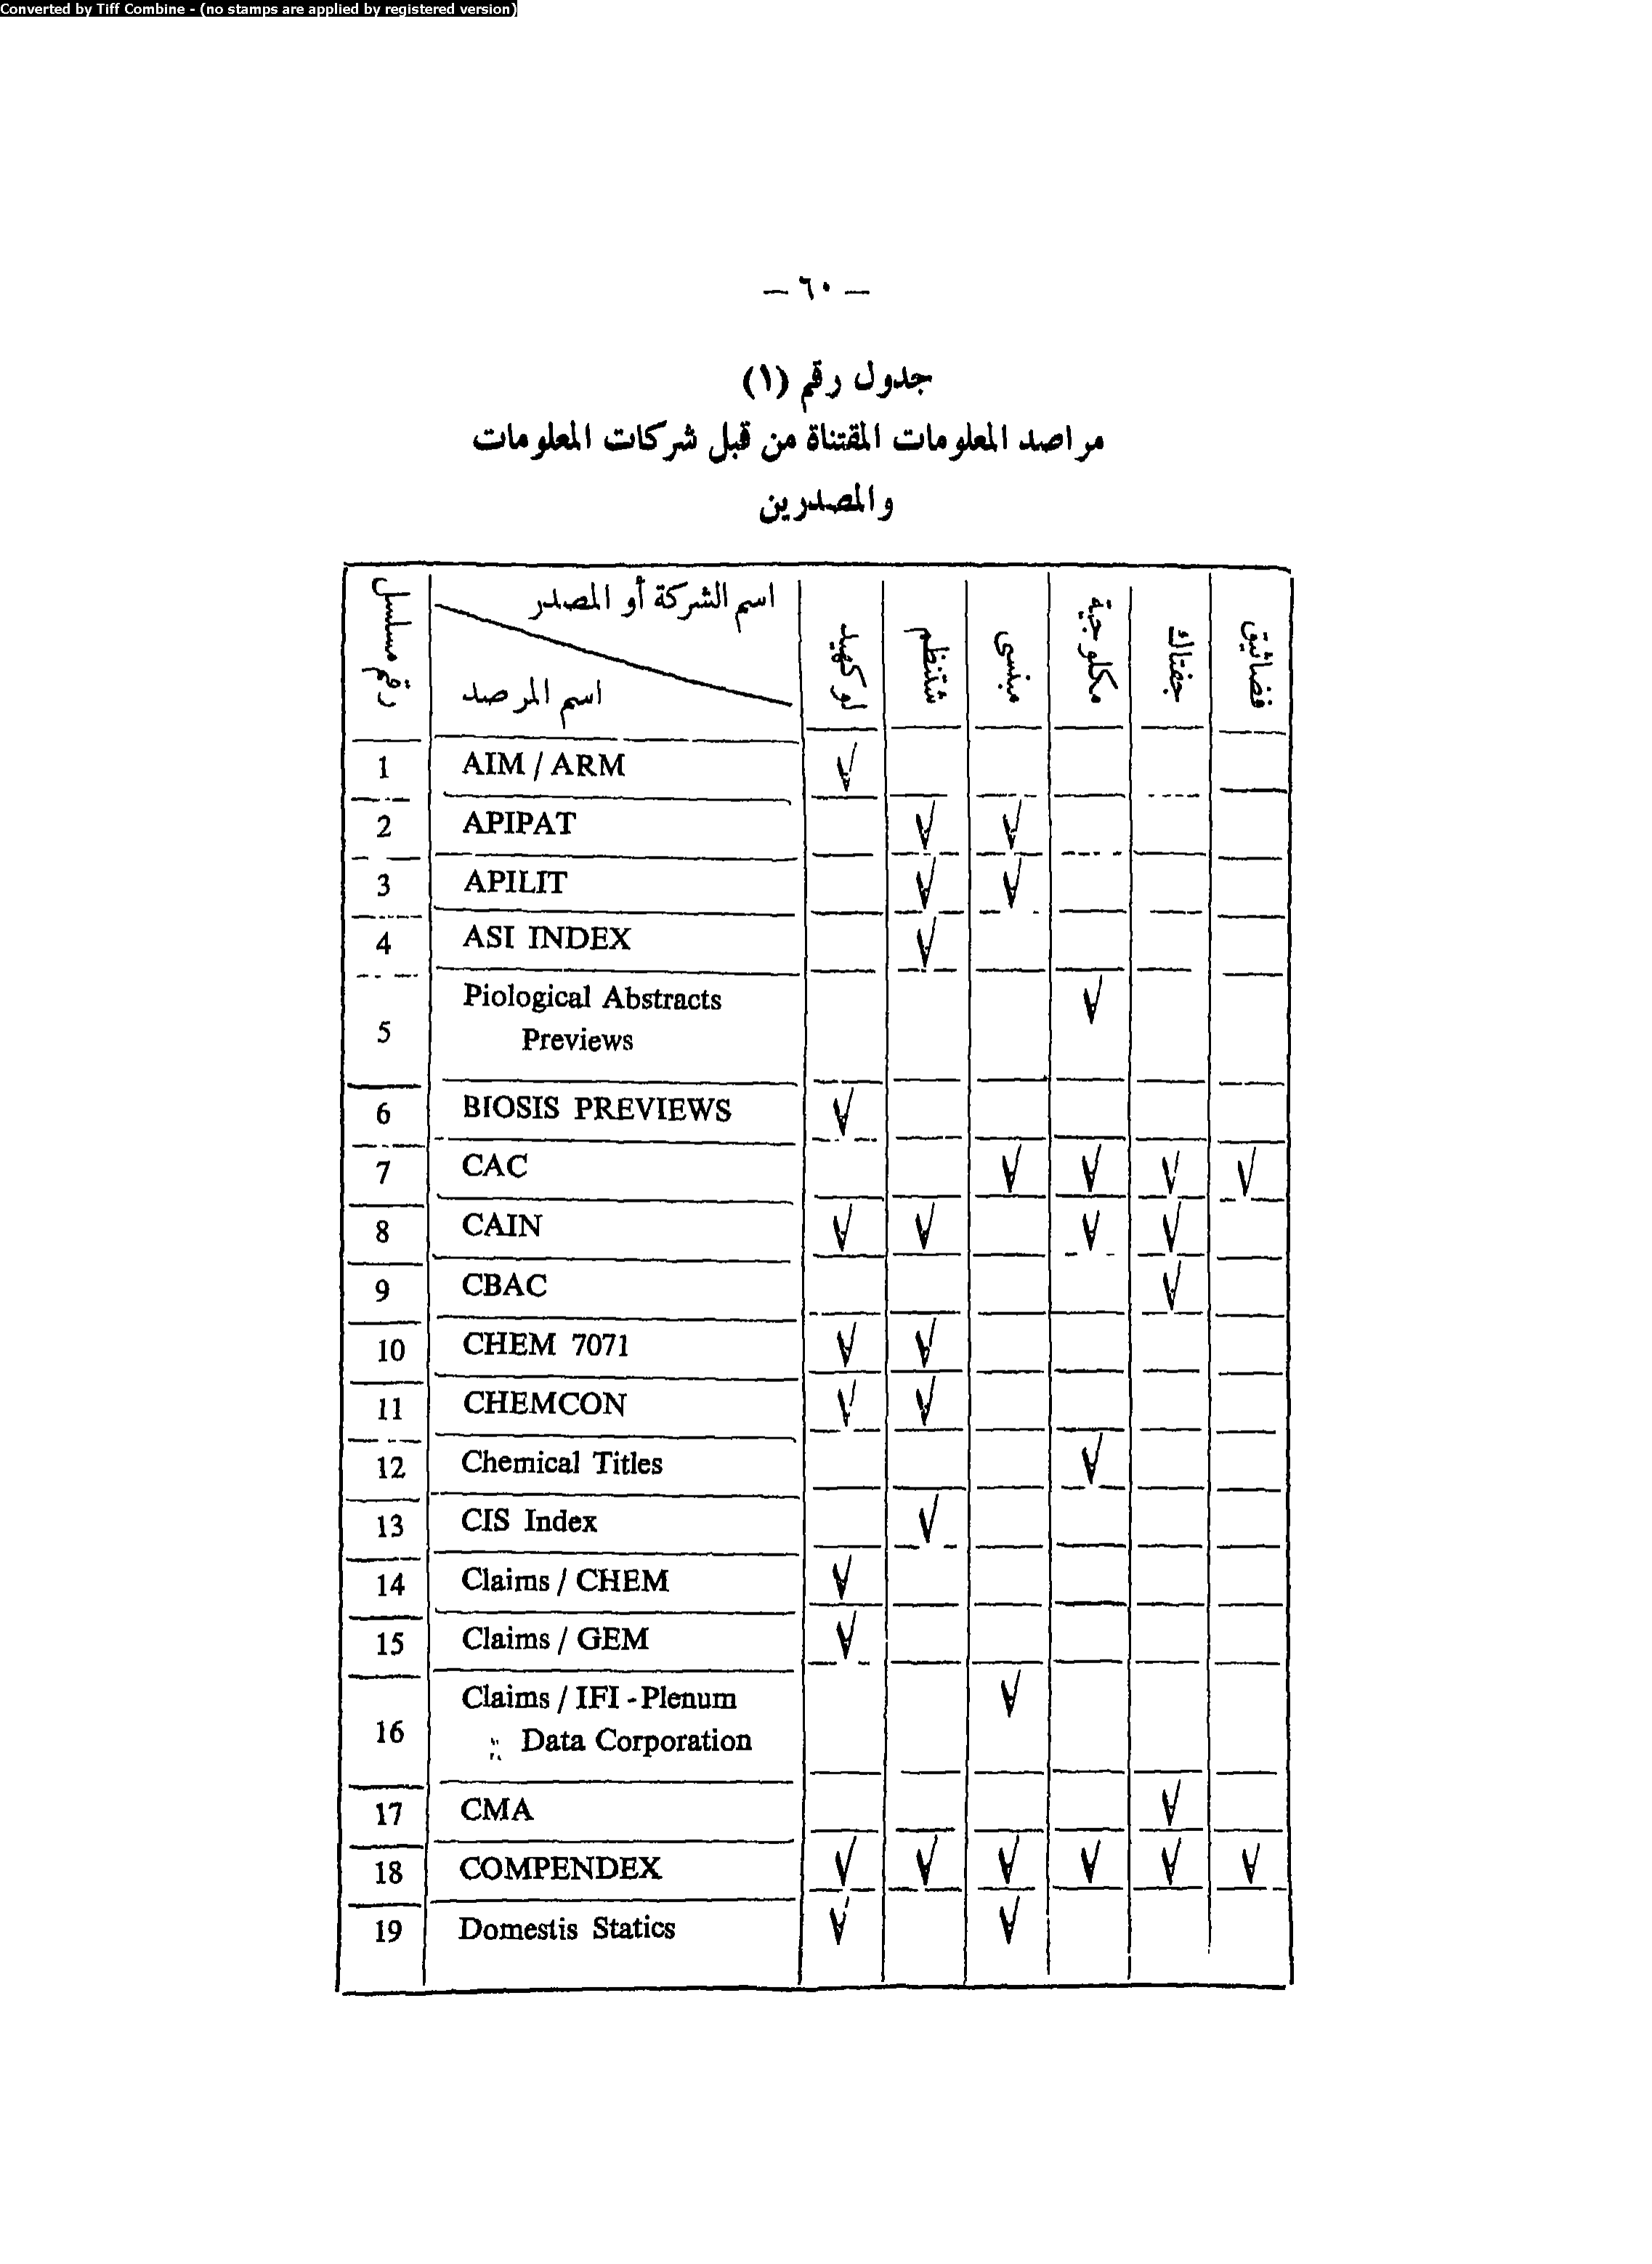 Converted by Tiff Combine - (no stamps are applied by registered version)
— ٦٠ —
جدول رقم (١)
مراصد المعلومات المقتناة من قبل شركات المعلومات
والمصدرين
رقم مسلسل اسم الشركة أو المصدر لوكهيد شتنظم مبنسى مكلوجية جفتاك فضائيق
اسم المرصد
1 AIM / ARM √
2 APIPAT √ √
3 APILIT √ √
4 ASI INDEX √
5 Piological Abstracts √
Previews
6 BIOSIS PREVIEWS √
7 CAC √ √ √ √
8 CAIN √ √ √ √
9 CBAC √
10 CHEM 7071 √ √
11 CHEMCON √ √
12 Chemical Titles √
13 CIS Index √
14 Claims / CHEM √
15 Claims / GEM √
16 Claims / IFI - Plenum √
Data Corporation
17 CMA √
18 COMPENDEX √ √ √ √ √ √
19 Domestis Statics √ √